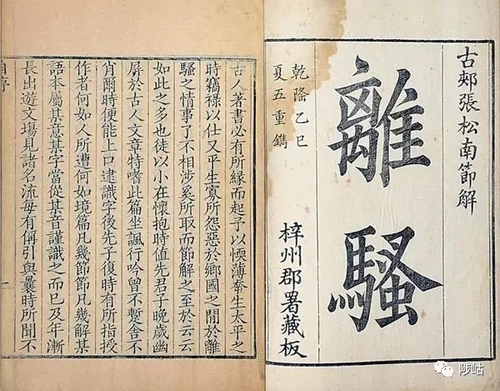 古郟張松南節解
離騷
乾隆乙巳
夏五重鐫
梓州郡署藏板
古人著書必有所緣而起予以愞薄幸生太平之
時竊祿以仕又平生寡所怨惡於鄉國之間於離
騷之情事了不相涉奚所取而節解之至於云云
如此之多也徒以小在懷抱時值先君子晚歲幽
屏於古人文章特嗜此篇坐諷行吟曾不暫舍不
肖爾時便能上口逮識字後先子復時有所指授
作者何如人所遭何如境篇凡幾節節凡幾解某
語本屬某意某字當從某音謹識之而已及年漸
長出遊文塲見諸名流每有偁引與曩時所聞不
陟岵